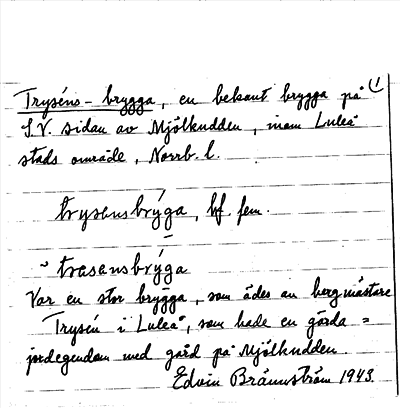 (1
Tryséns-brygga, en bekant brygga på
S.V. sidan av Mjölkudden, inom Luleå
stads område, Norrb. l.
trysensbrýga, bf. fem.
~ trasensbrýga
Var en stor brygga, som ådes av bergmästare
Trysén i Luleå, som hade en gårda=
jordegendom med gård på Mjölkudden.
Edvin Brännström 1943.